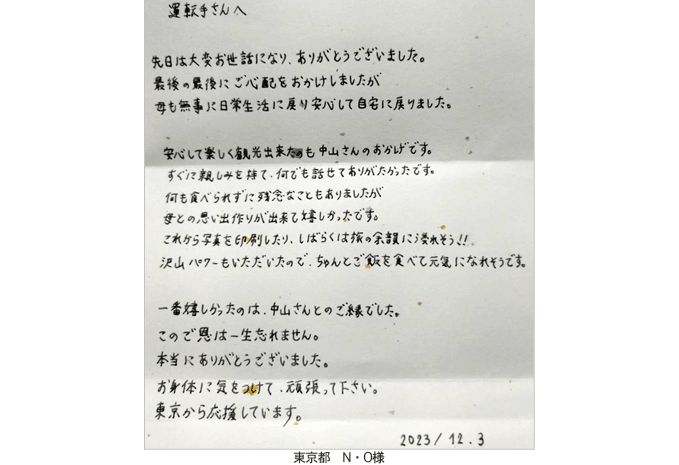 運転手さんへ
先日は大変お世話になり、ありがとうございました。
最後の最後にご心配をおかけしましたが
母も無事に日常生活に戻り安心して自宅に戻りました。
安心して楽しく観光出来たのも中山さんのおかげです。
すぐに親しみを持て、何でも話せてありがたかったです。
何も食べられずに残念なこともありましたが
母との思い出作りが出来て嬉しかったです。
これから写真を印刷したり、しばらくは旅の余韻に浸れそう!!
沢山パワーもいただいたので、ちゃんとご飯を食べて元気になれそうです。
一番嬉しかったのは、中山さんとのご縁でした。
このご恩は一生忘れません。
本当にありがとうございました。
お身体に気をつけて、頑張って下さい。
東京から応援しています。
2023/12.3
東京都 N・O様